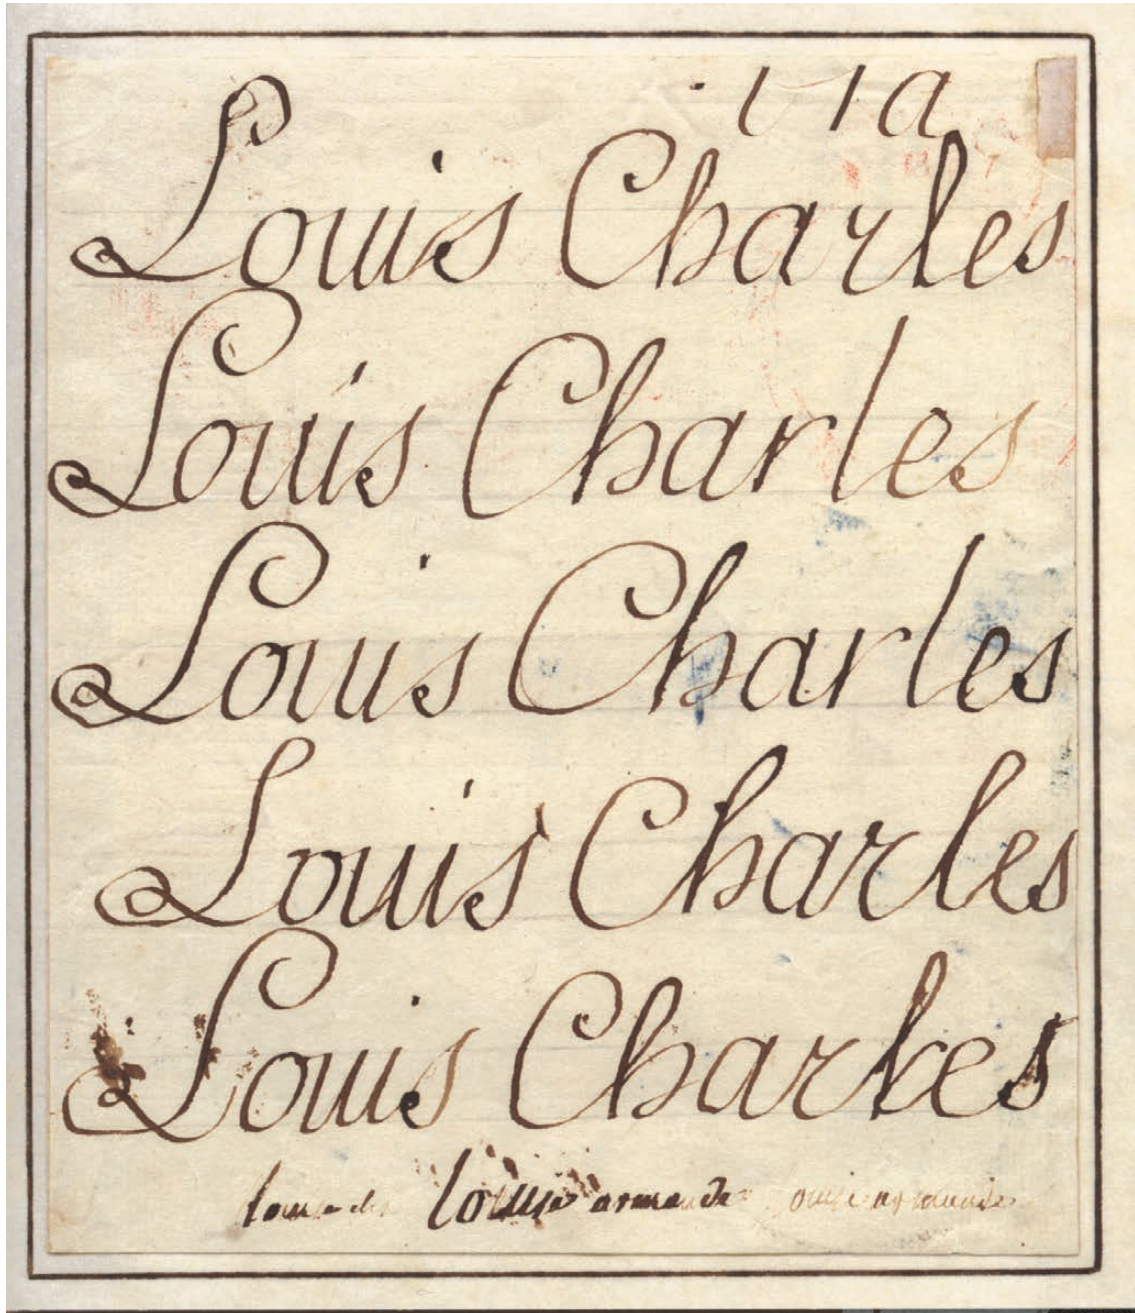 Louis Charles
Louis Charles
Louis Charles
Louis Charles
Louis Charles
louise armande